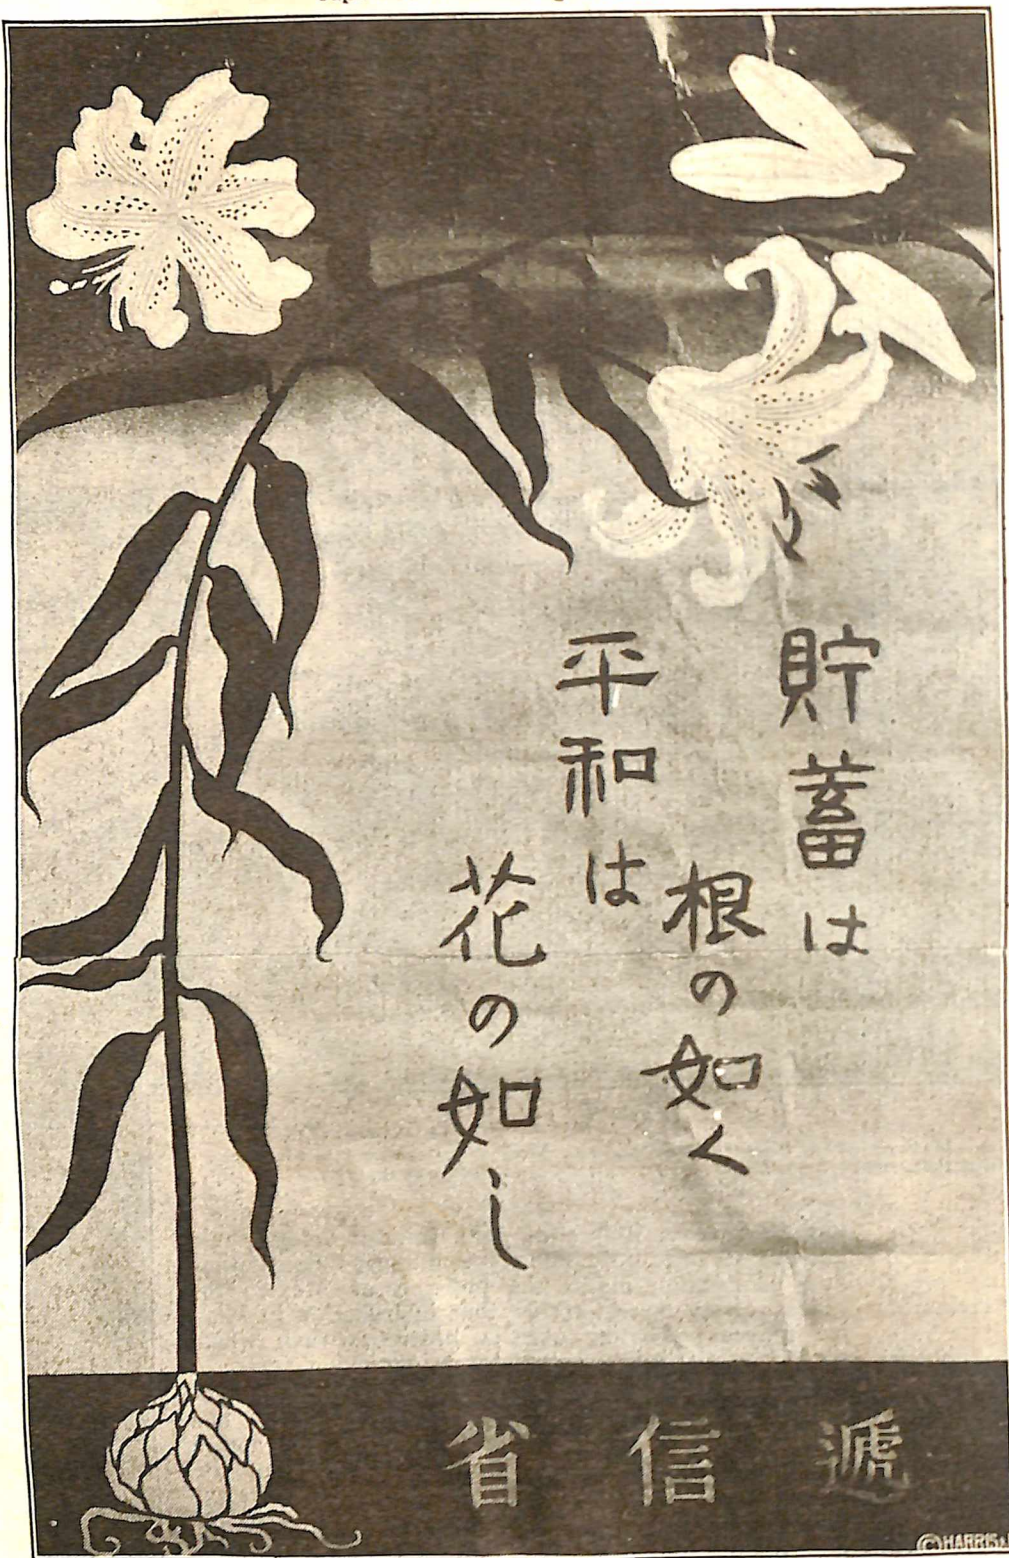 貯蓄は
根の如く
平和は
花の如し
遞信省
©HARRIS &